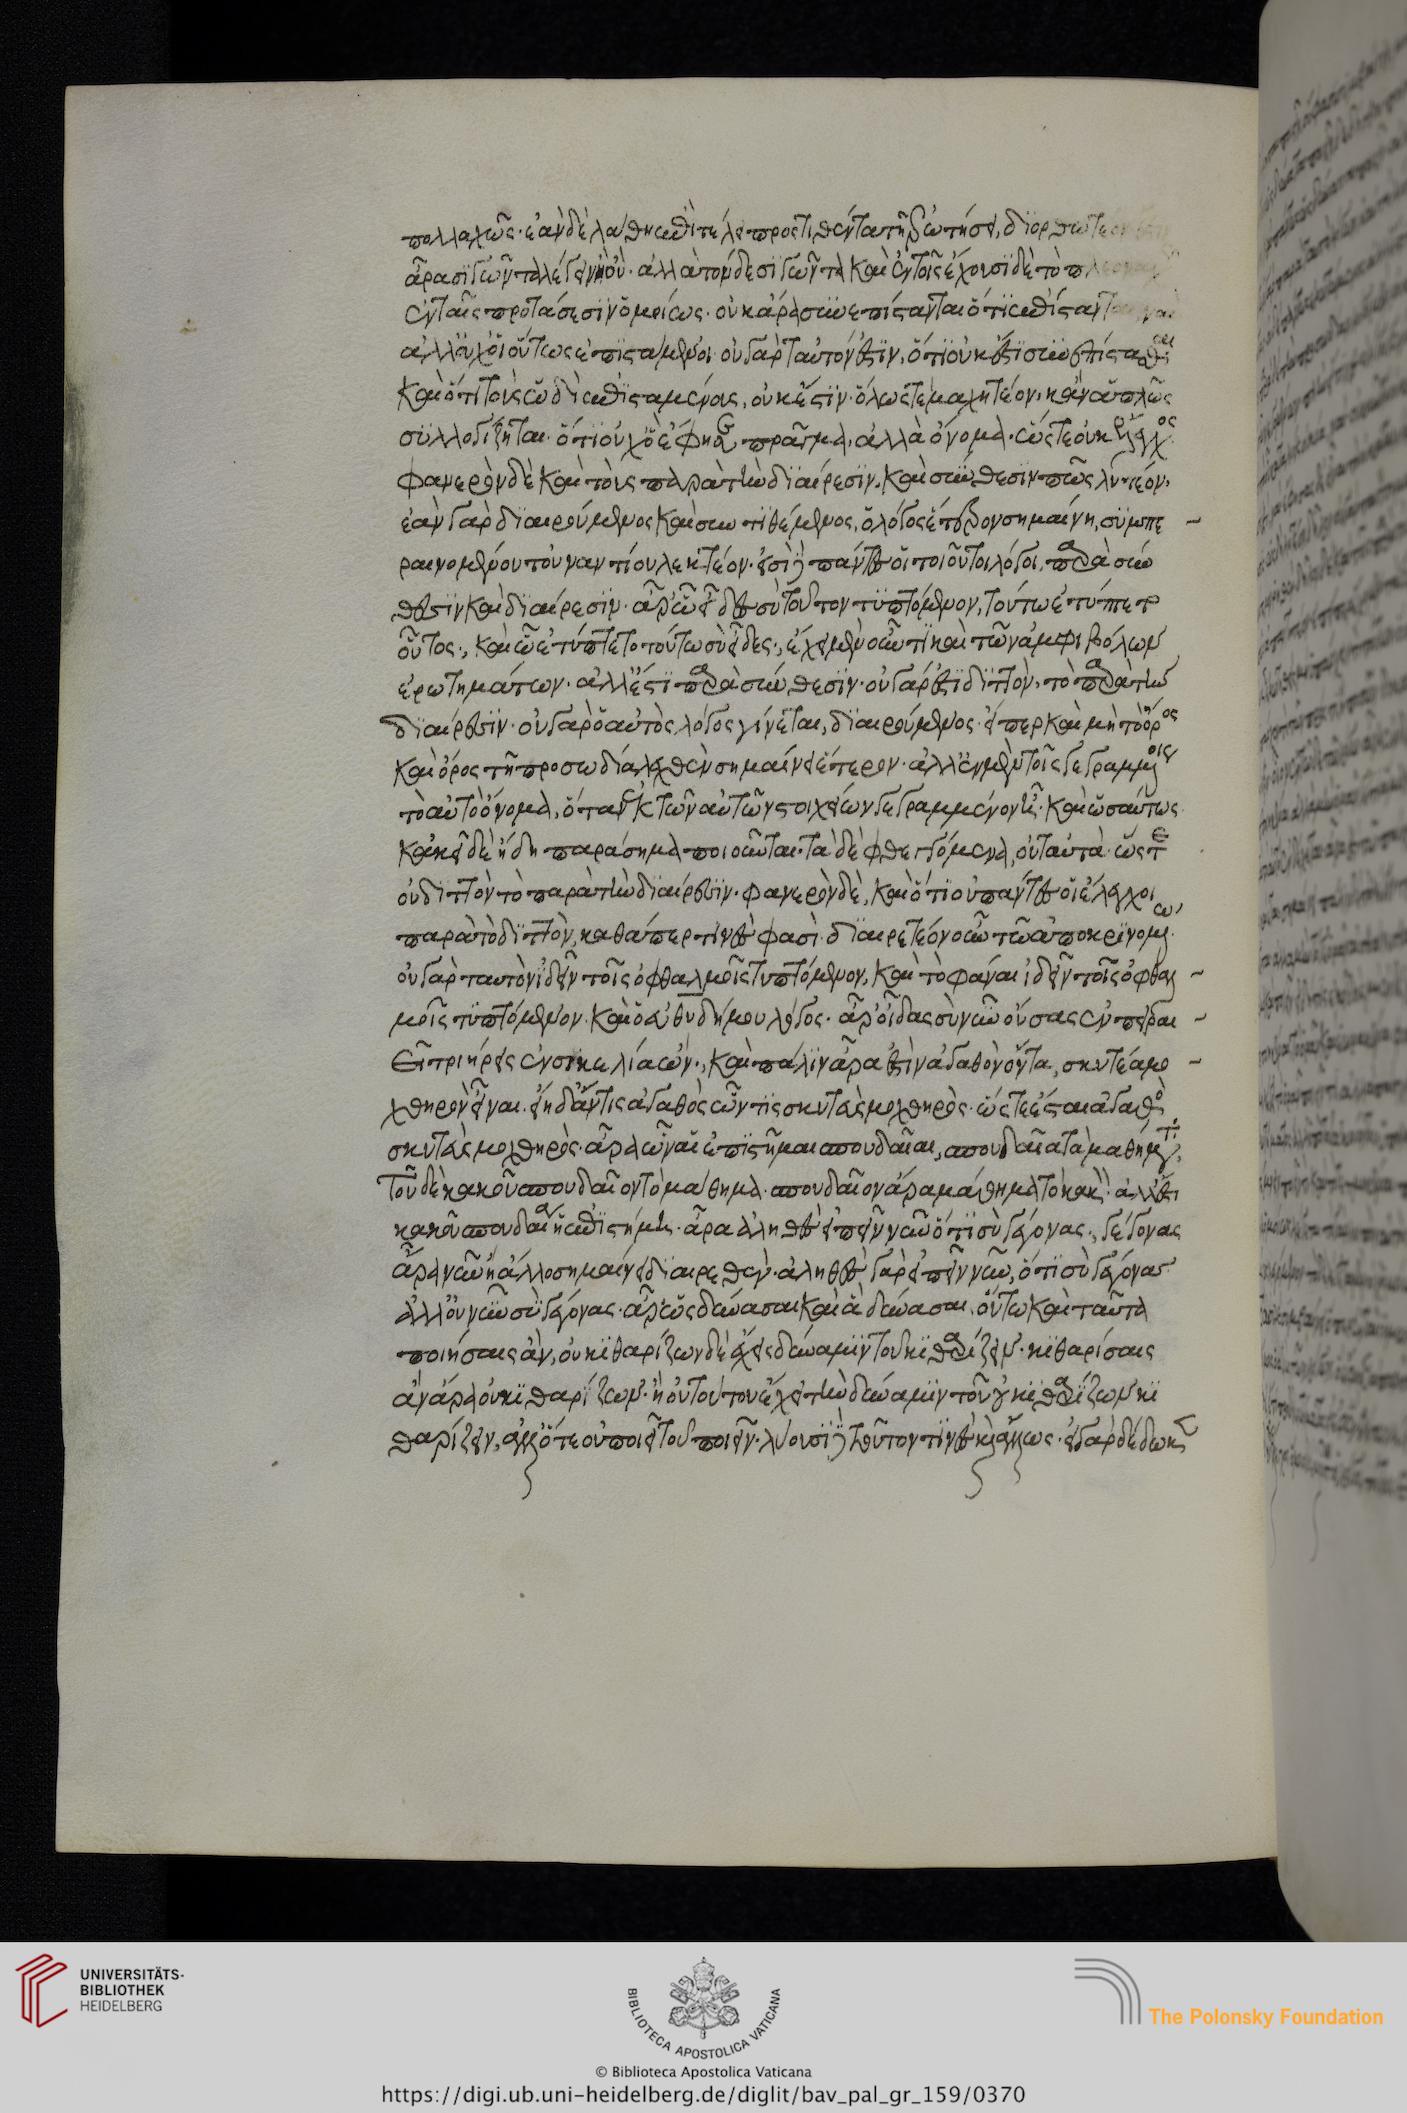 πολλαχῶς· ἐὰν δὲ λάθη ἐπὶ τέλει προστιθέντα τῆ ἐρωτήσει, διορθωτέον
ἆρα σιγῶντα λέγειν· οὔ· ἀλλὰ τόνδε σιγῶντα καὶ ἐν τοῖς ἔχουσι δὲ τὸ
ἐν ταῖς προτάσεσιν ὁμοίως· οὐκ ἄρα συνεπίστανται ὅτι ἐπίστανται
ἀλλ' οὐχ οἱ οὕτως ἐπιστάμενοι· οὐ γὰρ ταυτόν ἐστιν, ὅτι οὐκ ἔστι συνεπίστασθαι
καὶ ὅτι τοὺς ὧδὶ ἐπισταμένους, οὐκ ἔστιν· ὅλως τε μαχητέον, κἂν ἁπλῶς
συλλογίζηται· ὅτι οὐχ ὃ ἔφησε πρᾶγμα, ἀλλὰ ὄνομα· ὥστε οὐκ ἔλεγχος
φανερὸν δὲ καὶ τοὺς παρὰ τὴν διαίρεσιν, καὶ σύνθεσιν πῶς λυτέον,
ἐὰν γὰρ διαιρούμενος καὶ συντιθέμενος, ὁ λόγος ἕτερον σημαίνη, συμπε
ραινομένου τοὐναντίον λεκτέον· εἰσὶ δὲ πάντες οἱ τοιοῦτοι λόγοι, παρὰ σύν
θεσιν καὶ διαίρεσιν· ἆρ' ὧ εἶδες σὺ τοῦτον τυπτόμενον, τούτω ἐτύπτετο
οὗτος, καὶ ὧ ἐτύπτετο τούτω σὺ εἶδες, ἔχει μὲν οὖν τι καὶ τῶν ἀμφιβόλων
ἐρωτημάτων· ἀλλ' ἔστι παρὰ σύνθεσιν· οὐ γάρ ἐστι διττὸν, τὸ παρὰ τὴν
διαίρεσιν· οὐ γὰρ ὁ αὐτὸς λόγος γίνεται, διαιρούμενος· εἴπερ καὶ μὴ τὸ ὄρος
καὶ ὅρος τῆ προσωδία λεχθὲν σημαίνει ἕτερον· ἀλλ' ἐν μὲν τοῖς γεγραμμένοις
τὸ αὐτὸ ὄνομα, ὅταν ἐκ τῶν αὐτῶν στοιχείων γεγραμμένον ἦ· καὶ ὡσαύτως
κἀκεῖ δὲ ἤδη παράσημα ποιοῦνται· τὰ δὲ φθεγγόμενα, οὐ ταὐτὰ· ὥστε
οὐ διττὸν τὸ παρὰ τὴν διαίρεσιν· φανερὸν δὲ, καὶ ὅτι οὐ πάντες οἱ ἔλεγχοι
παρὰ τὸ διττὸν, καθάπερ τινές φασὶ· διαιρετέον οὖν τῶ ἀποκρινομένω
οὐ γὰρ ταυτὸν ἰδεῖν τοῖς ὀφθαλμοῖς τυπτόμενον, καὶ τὸ φάναι ἰδεῖν τοῖς ὀφθαλ
μοῖς τυπτόμενον· καὶ ὁ εὐθυδήμου λόγος· ἆρ' οἶδας σὺ νῦν οὔσας ἐν πειραι
εῖ τριήρεις ἐν σικελία ὤν, καὶ πάλιν ἆρα ἐστὶν ἀγαθὸν ὄντα, σκυτέα μο
χθηρὸν εἶναι· εἴη δ' ἄν τις ἀγαθὸς ὢν τις σκυτεὺς μοχθηρὸς· ὥστε ἔσται ἀγαθὸς
σκυτεὺς μοχθηρὸς· ἆρα ὧν αἱ ἐπιστῆμαι σπουδαῖαι, σπουδαῖα τὰ μαθήματα,
τοῦ δὲ κακοῦ σπουδαῖον τὸ μάθημα· σπουδαῖον ἄρα μάθημα τὸ κακὸν· ἀλλ' ἔστι
κακοῦ σπουδαία ἡ ἐπιστήμη· ἆρα ἀληθὲς εἰπεῖν νῦν ὅτι σὺ γέγονας, γέγονας
ἆρα νῦν ἢ ἄλλο σημαίνει διαιρεθὲν· ἀληθὲς γὰρ εἰπεῖν νῦν, ὅτι σὺ γέγονας
ἀλλ' οὐ νῦν σὺ γέγονας· ἆρ' ὡς δύνασαι καὶ ἃ δύνασαι, οὕτω καὶ ταῦτα
ποιήσαις ἂν, οὐ κιθαρίζων δὲ ἔχεις δύναμιν τοῦ κιθαρίζειν· κιθαρίσαις
ἂν ἄρα οὐ κιθαρίζων· ἢ οὐ τούτου ἔχει τὴν δύναμιν τοῦ οὐ κιθαρίζων κι
θαρίζειν, ἀλλ' ὅτε οὐ ποιεῖ τοῦ ποιεῖν· λύουσι δὲ τοῦτον τινὲς καὶ ἄλλως· εἰ γὰρ δέδωκεν
UNIVERSITÄTS-
BIBLIOTHEK
HEIDELBERG
BIBLIOTECA APOSTOLICA VATICANA
© Biblioteca Apostolica Vaticana
The Polonsky Foundation
https://digi.ub.uni-heidelberg.de/diglit/bav_pal_gr_159/0370